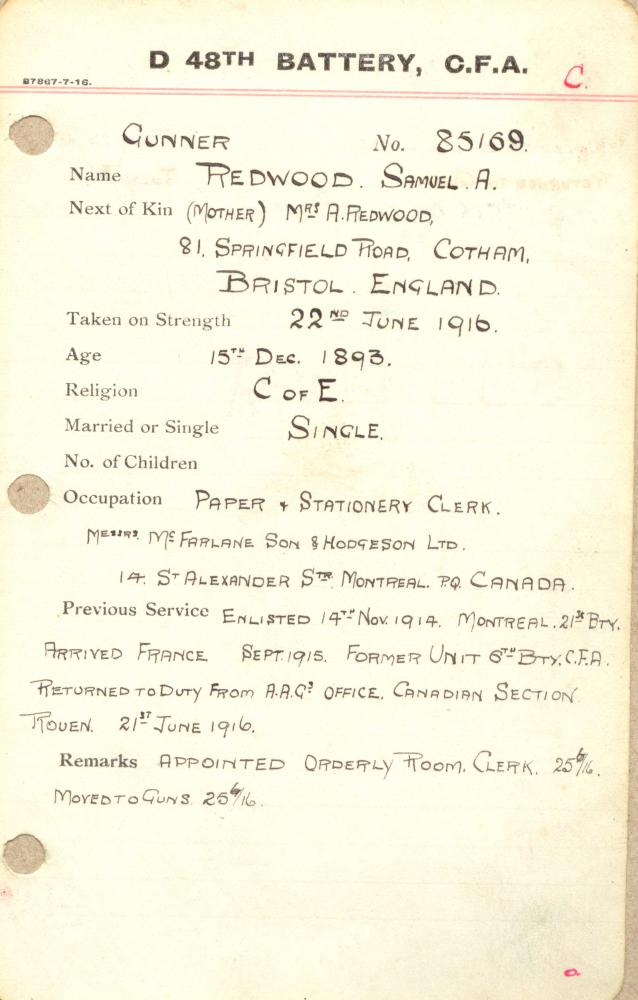 D 48TH BATTERY, C.F.A.
C.
B7867-7-16.
GUNNER No. 85169.
Name REDWOOD. SAMUEL. A.
Next of Kin (MOTHER) MRS A. REDWOOD,
81, SPRINGFIELD ROAD, COTHAM,
BRISTOL. ENGLAND.
Taken on Strength 22ND JUNE 1916.
Age 15TH DEC. 1893.
Religion C OF E.
Married or Single SINGLE.
No. of Children
Occupation PAPER & STATIONERY CLERK.
MESSRS. MC FARLANE SON & HODGESON LTD.
14. ST ALEXANDER STR. MONTREAL. P.Q. CANADA.
Previous Service ENLISTED 14TH NOV. 1914. MONTREAL. 21ST BTY.
ARRIVED FRANCE SEPT. 1915. FORMER UNIT 6TH BTY. C.F.A.
RETURNED TO DUTY FROM A.A.G'S OFFICE. CANADIAN SECTION
ROUEN. 21ST JUNE 1916.
Remarks APPOINTED ORDERLY ROOM. CLERK. 25/6/16.
MOVED TO GUNS. 25/6/16.